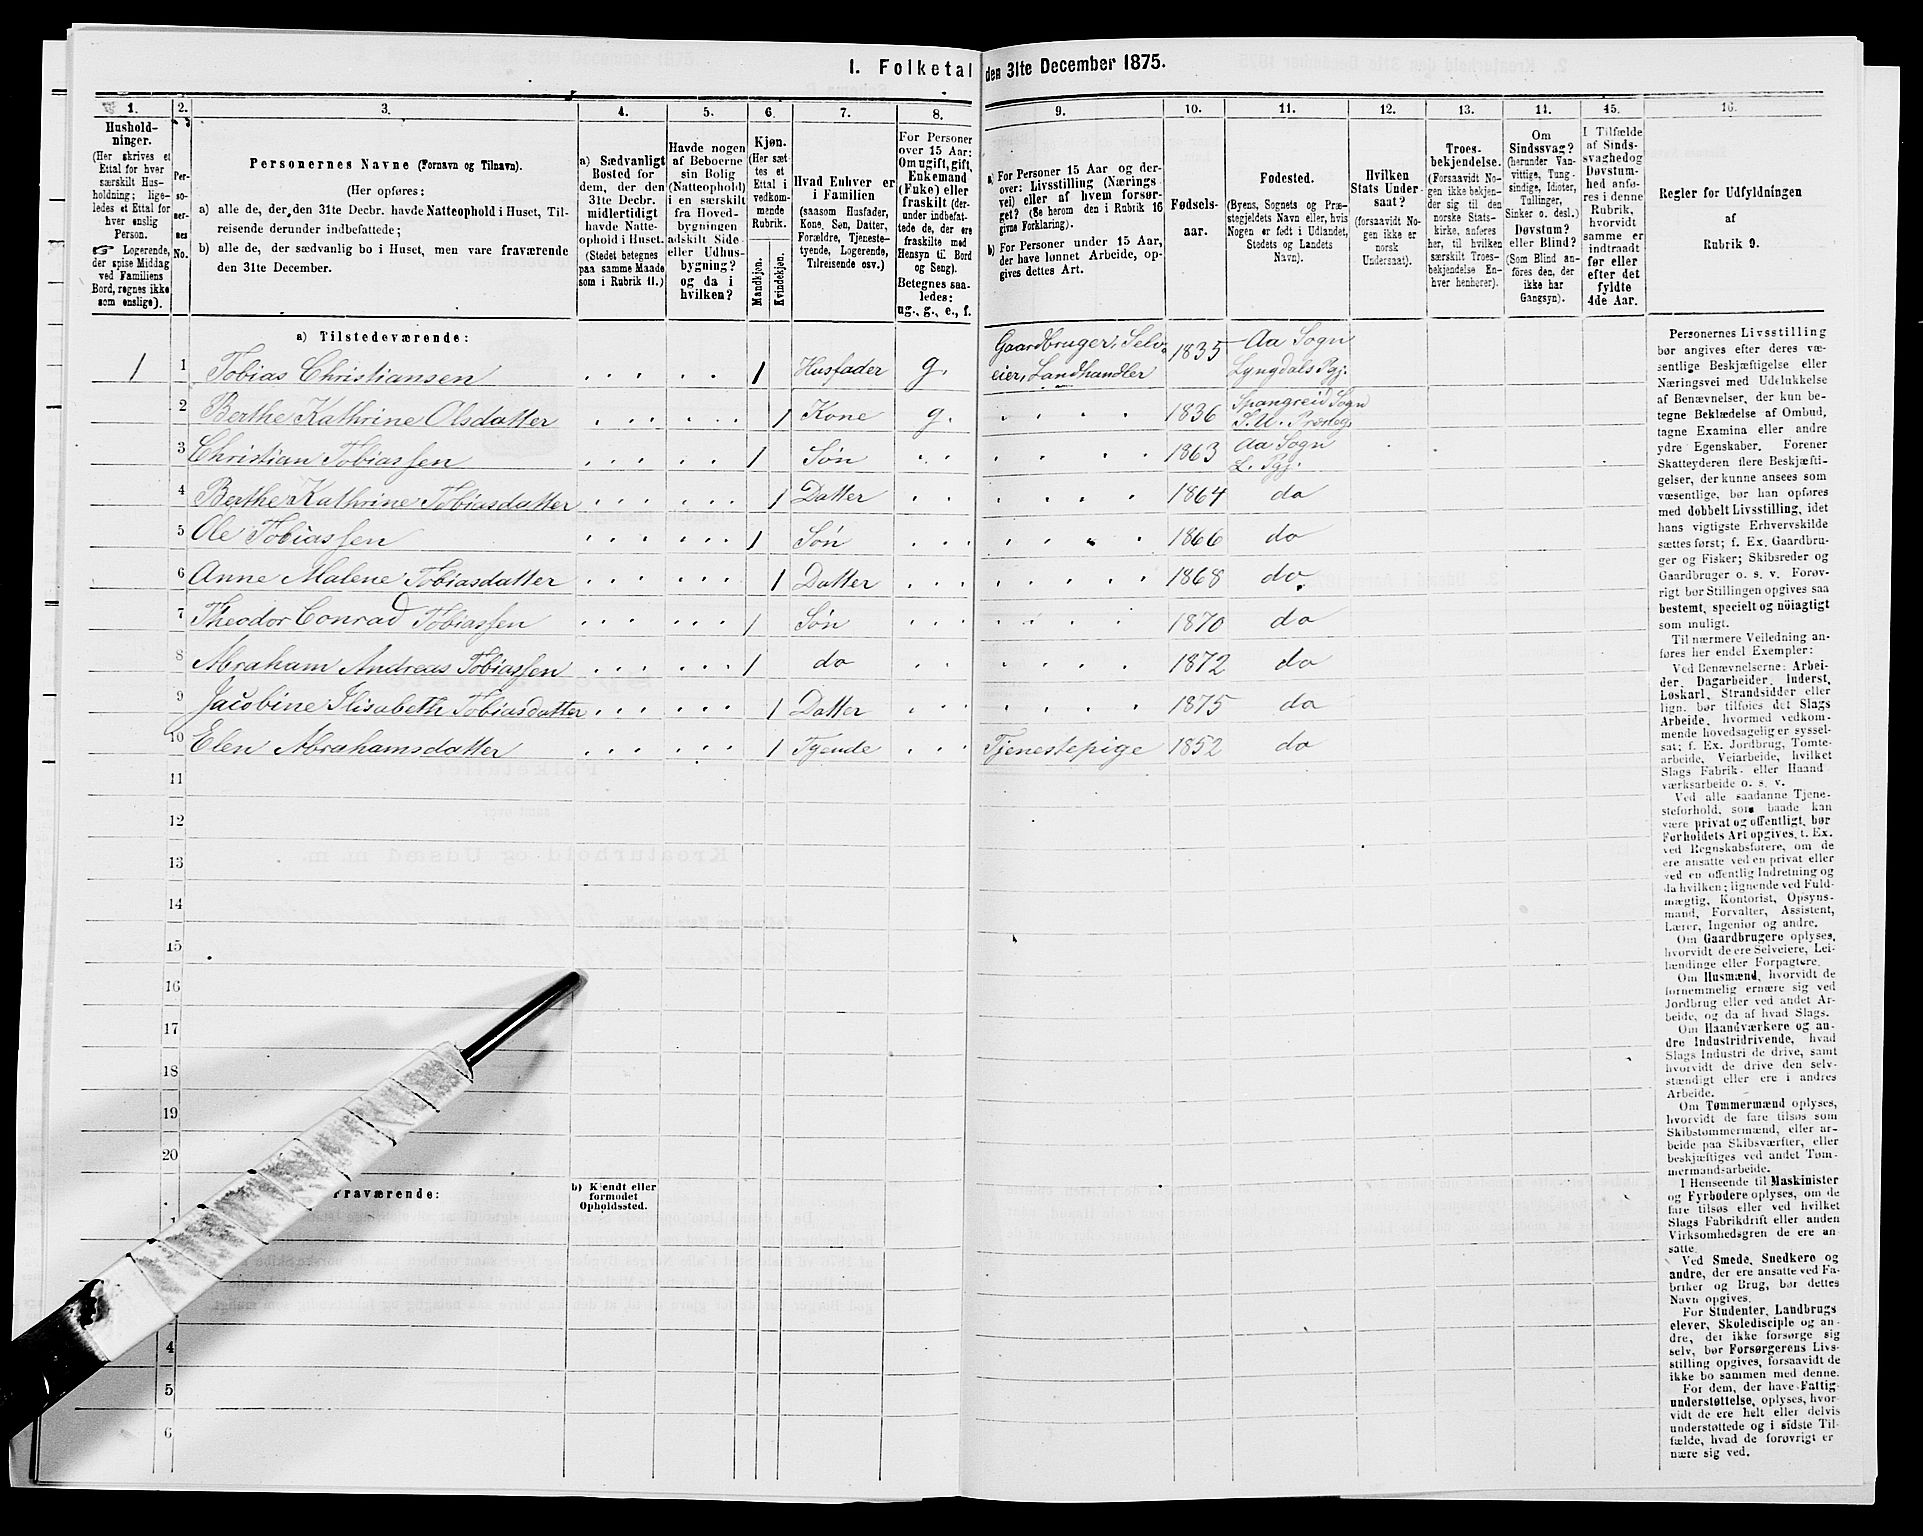 I. Folketal den 31te December 1875.
1.
Hushold-
ninger.
(Her skrives et
Ettal for hver
særskilt Hus-
holdning; lige-
ledes et Ettal for
hver enslig
Person.
☞ Logerende,
der spise Middag
ved Familiens
Bord, regnes ikke
som enslige).
2.
Per-
so-
ner-
nes
No.
3.
Personernes Navne (Fornavn og Tilnavn).
(Her opføres:
a) alle de, der den 31te Decbr. havde Natteophold i Huset, Til-
reisende derunder indbefattede;
b) alle de, der sædvanlig bo i Huset, men vare fraværende
den 31te December.
4.
a) Sædvanligt
Bosted for
dem, der den
31te Decbr.
midlertidigt
havde Natte-
ophold i Huset.
(Stedet betegnes
paa samme Maade
som i Rubrik 11.)
5.
Havde nogen
af Beboerne
sin Bolig
(Natteophold)
i en særskilt
fra Hoved-
bygningen
adskilt Side-
eller Udhus-
bygning?
og da i
hvilken?
6.
Kjøn.
(Her sæt-
tes et
Ettal i
vedkom-
mende
Rubrik.
Mandkjøn.
Kvindekjøn.
7.
Hvad Enhver er
i Familien
(saasom Husfader,
Kone, Søn, Datter,
Forældre, Tjeneste-
tyende, Logerende,
Tilreisende osv.)
8.
For Personer
over 15 Aar:
Om ugift, gift,
Enkemand
(Enke) eller
fraskilt (der-
under indbefat-
tede de, der ere
fraskilte med
Hensyn til Bord
og Seng).
Betegnes saa-
ledes:
ug., g., e., f.
9.
a) For Personer 15 Aar og der-
over: Livsstilling (Nærings-
vei) eller af hvem forsør-
get? (Se herom den i Rubrik 16
givne Forklaring).
b) For Personer under 15 Aar,
der have lønnet Arbeide, op-
gives dettes Art.
10.
Fødsels-
aar.
11.
Fødested.
(Byens, Sognets og Præ-
stegjeldets Navn eller, hvis
Nogen er født i Udlandet,
Stedets og Landets
Navn).
12.
Hvilken
Stats Under-
saat?
(forsaavidt No-
gen ikke er
norsk
Undersaat).
13.
Troes-
bekjendelse.
(Forsaavidt No-
gen ikke bekjen-
der sig til den
norske Stats-
kirke, anføres
her, til hvilken
særskilt Troes-
bekjendelse En-
hver henhører).
14.
Om
Sindssvag?
(herunder Van-
vittige, Tung-
sindige, Idioter,
Tullinger,
Sinker o. desl.)
Døvstum?
eller Blind?
(Som Blind an-
føres den, der
ikke har
Gangsyn).
15.
I Tilfælde
af Sinds-
svaghed og
Døvstum-
hed anfø-
res i denne
Rubrik,
hvorvidt
samme er
indtraadt
før eller
efter det
fyldte
4de Aar.
16.
Regler for Udfyldningen
af
Rubrik 9.
a) Tilstedeværende:
1 1 Tobias Christiansen 1 Husfader g. Gaardbruger, Selv-
eier, Landhandler 1835 Aa Sogn
Lyngdals Pgj.
2 Berthe Kathrine Olsdatter 1 Kone g. 1836 Spangreid Sogn
S. U. Prsteg.
3 Christian Tobiassen 1 Søn 1863 Aa Sogn
L. Pgj.
4 Berthe Kathrine Tobiasdatter 1 Datter 1864 do
5 Ole Tobiassen 1 Søn 1866 do
6 Anne Malene Tobiasdatter 1 Datter 1868 do
7 Theodor Conrad Tobiassen 1 Søn 1870 do
8 Abraham Andreas Tobiassen 1 do 1872 do
9 Jacobine Elisabeth Tobiasdatter 1 Datter 1875 do
10 Elen Abrahamsdatter 1 Tyende Tjenestepige 1852 do
11
12
13
14
15
16
17
18
19
20
raværende:
b) Kjendt eller
formodet
Opholdssted.
1
4
5
6
Personernes Livsstilling
bør angives efter deres væ-
sentlige Beskjæftigelse eller
Næringsvei med Udelukkelse
af Benævnelser, der kun be-
tegne Beklædelse af Ombud,
tagne Examina eller andre
ydre Egenskaber. Forener
Skatteyderen flere Beskjæfti-
gelser, der kunne ansees som
væsentlige, bør han opføres
med dobbelt Livsstilling, idet
hans vigtigste Erhvervskilde
sættes først; f. Ex. Gaardbru-
ger og Fisker; Skibsreder og
Gaardbruger o. s. v. Forøv-
rigt bør Stillingen opgives saa
bestemt, specielt og nöiagtigt
som muligt.
Til nærmere Veiledning an-
føres her endel Exempler:
Ved Benævnelserne: Arbei-
der, Dagarbeider, Inderst,
Løskarl, Strandsidder eller
lign. bør tilføies det Slags
Arbeide, hvormed vedkom-
mende hovedsagelig er syssel-
sat; f. Ex. Jordbrug, Tomte-
arbeide, Veiarbeide, hvilket
Slags Fabrik- eller Haand-
værksarbeide o. s. v.
Ved alle saadanne Tjene-
steforhold, som baade kan
være privat og offentligt, bør
Forholdets Art opgives, t. Ex.
ved Regnskabsførere, om de
ere ansatte ved en privat eller
ved en offentlig Indretning og
da hvilken; lignende ved Fuld-
mægtig, Kontorist, Opsyns-
mand, Forvalter, Assistent,
Lærer, Ingeniør og andre.
Om Gaardbrugere oplyses,
hvorvidt de ere Selveiere, Lei-
lændinge eller Forpagtere.
Om Husmænd, hvorvidt de
fornemmelig ernære sig ved
Jordbrug eller ved andet Ar-
beide, og da af hvad Slags.
Om Haandværkere og an-
dre Industridrivende, hvad
Slags Industri de drive, samt
hvorvidt de drive den selv-
stændigt eller ere i andres
Arbeide.
Om Tømmermænd oplyses,
hvorvidt de fare tilsøs som
Skibstømmermænd, eller ar-
beide paa Skibsværfter, eller
beskjæftiges ved andet Tøm-
mermandsarbeide.
I Henseende til Maskinister
og Fyrbødere oplyses, om de
fare tilsøs eller ved hvilket
Slags Fabrikdrift eller anden
Virksomhedsgren de ere an-
satte.
Ved Smede, Snedkere og
andre, der ere ansatte ved Fa-
briker og Brug, bør dettes
Navn opgives.
For Studenter, Landbrugs
elever, Skoledisciple og an-
dre, der ikke forsørge sig
selv, bør Forsørgerens Livs-
stilling opgives, forsaavidt de
ikke bo sammen med denne.
For dem, der have Fattig-
understøttelse, oplyses, hvor-
vidt de ere helt eller delvis
understøttede og i sidste Til-
fælde, hvad de forøvrigt er-
nære sig ved.